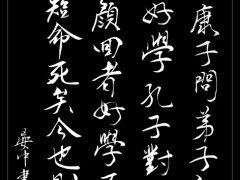 康子問弟子
好學孔子對
顏回者好學
短命死矣今也則